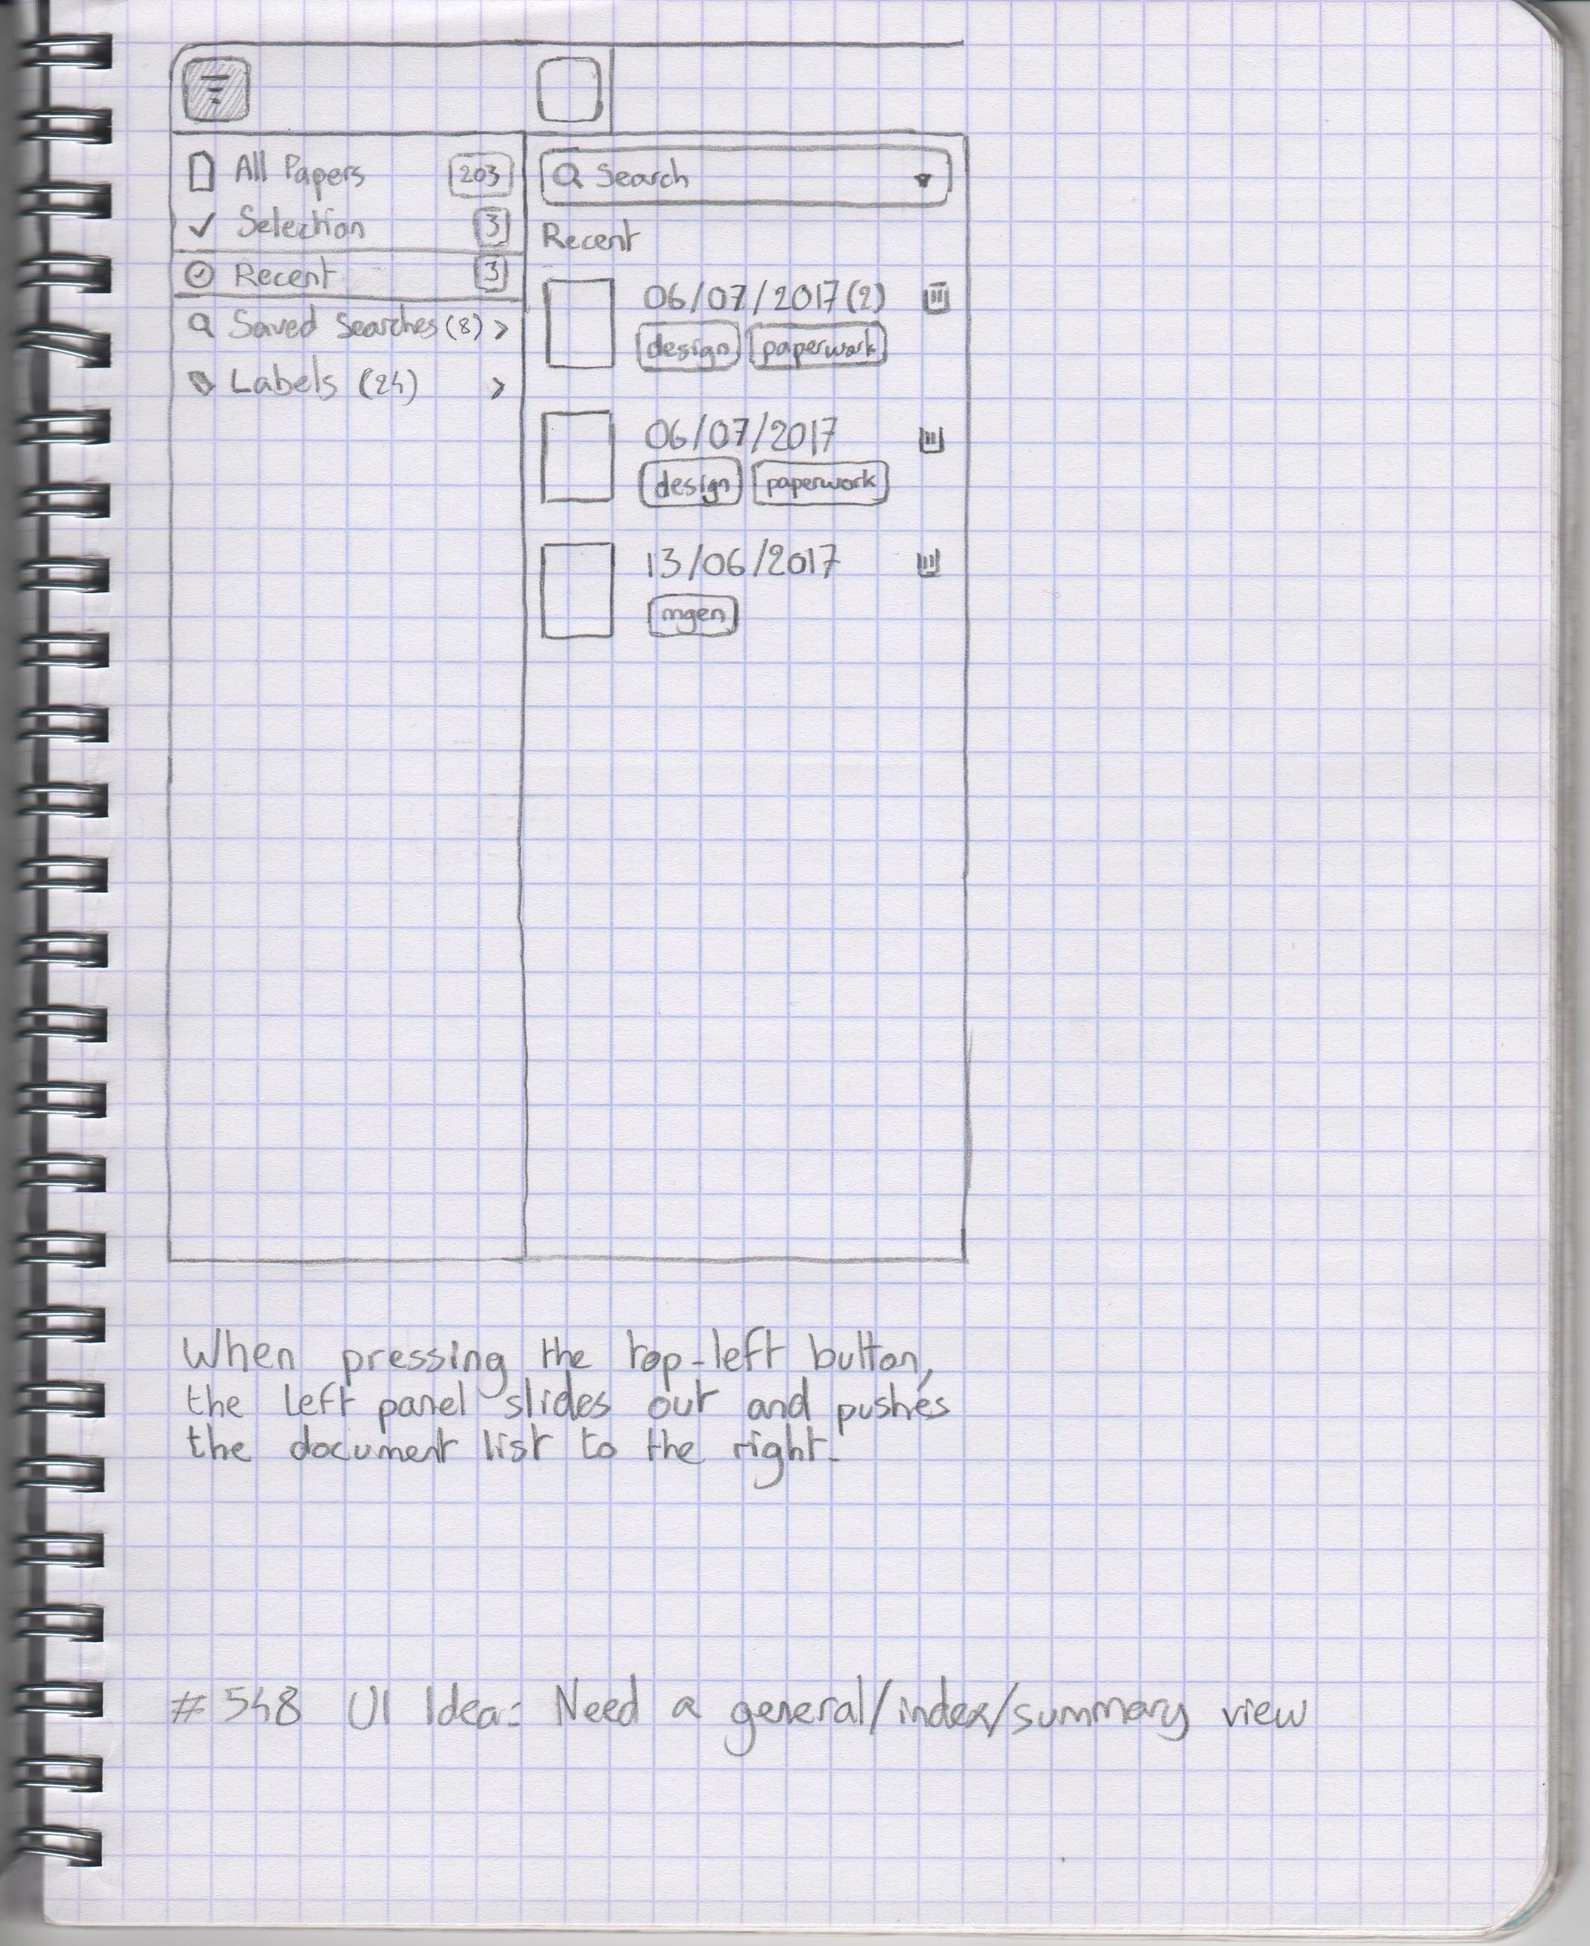 All Papers 203
Selection 3
Recent 3
Saved Searches (8) >
Labels (24) >
Search
Recent
06/07/2017 (2)
design paperwork
06/07/2017
design paperwork
13/06/2017
mgen
When pressing the top-left button,
the left panel slides out and pushes
the document list to the right.
# 548 UI Idea: Need a general/index/summary view